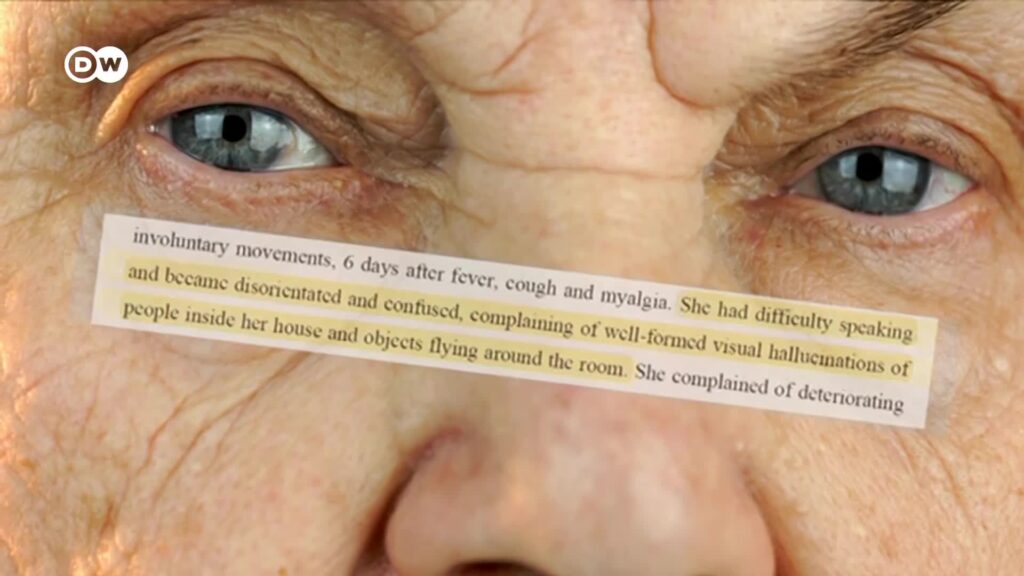 DW
involuntary movements, 6 days after fever, cough and myalgia. She had difficulty speaking
and became disorientated and confused, complaining of well-formed visual hallucinations of
people inside her house and objects flying around the room. She complained of deteriorating